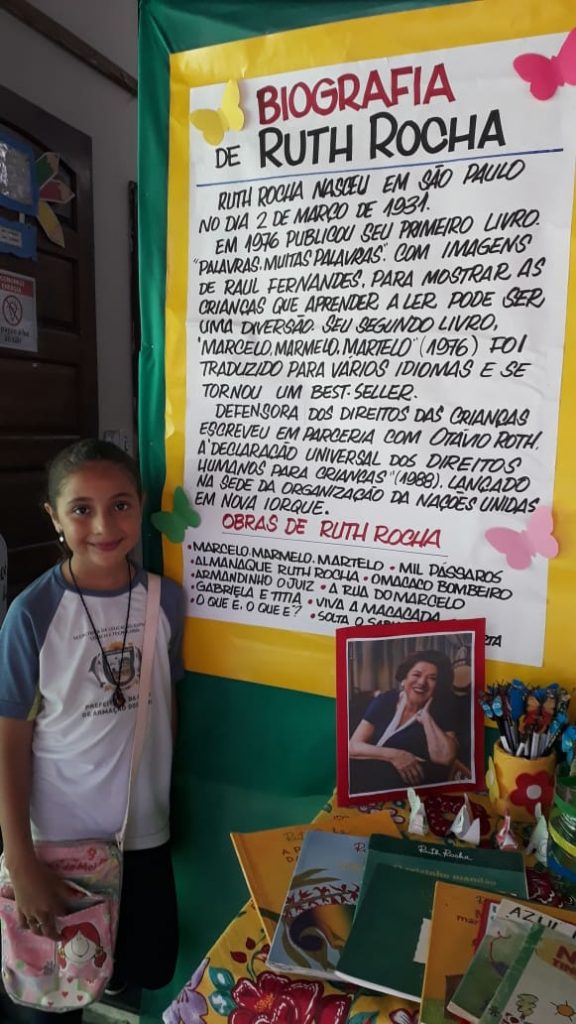 BIOGRAFIA
DE RUTH ROCHA
RUTH ROCHA NASCEU EM SÃO PAULO
NO DIA 2 DE MARÇO DE 1931.
EM 1976 PUBLICOU SEU PRIMEIRO LIVRO.
"PALAVRAS, MUITAS PALAVRAS". COM IMAGENS
DE RAUL FERNANDES, PARA MOSTRAR AS
CRIANÇAS QUE APRENDER A LER PODE SER
UMA DIVERSÃO. SEU SEGUNDO LIVRO,
"MARCELO, MARMELO, MARTELO" (1976) FOI
TRADUZIDO PARA VÁRIOS IDIOMAS E SE
TORNOU UM BEST-SELLER.
DEFENSORA DOS DIREITOS DAS CRIANÇAS
ESCREVEU EM PARCERIA COM OTÁVIO ROTH,
A "DECLARAÇÃO UNIVERSAL DOS DIREITOS
HUMANOS PARA CRIANÇAS" (1988). LANÇADO
NA SEDE DA ORGANIZAÇÃO DA NAÇÕES UNIDAS
EM NOVA IORQUE.
OBRAS DE RUTH ROCHA
• MARCELO, MARMELO, MARTELO • MIL PÁSSAROS
• ALMANAQUE RUTH ROCHA • O MACACO BOMBEIRO
• ARMANDINHO O JUIZ • A RUA DO MARCELO
• GABRIELA E TITIA • VIVA A MACACADA
• O QUE É, O QUE É? • SOLTA O
PREFEITURA
DE ARMAÇÃO DOS
Ruth Rocha
AZUL